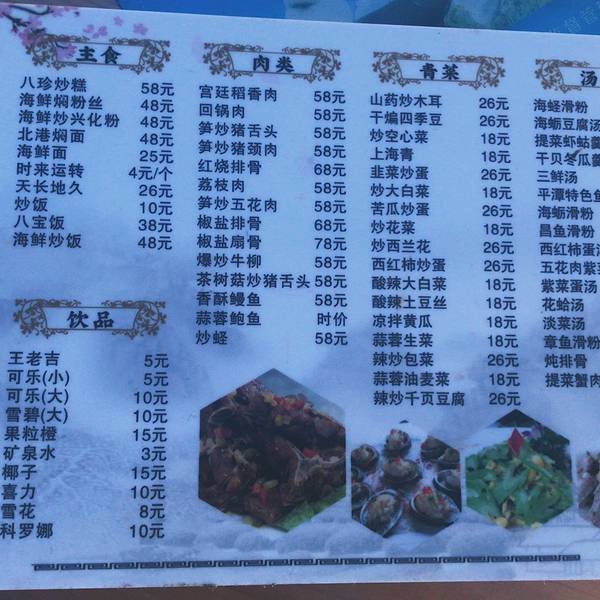 主食
八珍炒糕 58元
海鲜焖粉丝 48元
海鲜炒兴化粉 48元
北港焖面 48元
海鲜面 25元
时来运转 4元/个
天长地久 26元
炒饭 10元
八宝饭 38元
海鲜炒饭 48元
饮品
王老吉 5元
可乐(小) 5元
可乐(大) 10元
雪碧(大) 10元
果粒橙 15元
矿泉水 3元
椰子 15元
喜力 10元
雪花 8元
科罗娜 10元
肉类
宫廷稻香肉 58元
回锅肉 58元
笋炒猪舌头 58元
笋炒猪颈肉 58元
红烧排骨 68元
荔枝肉 58元
笋炒五花肉 58元
椒盐排骨 68元
椒盐扇骨 78元
爆炒牛柳 58元
茶树菇炒猪舌头 58元
香酥鳗鱼 58元
蒜蓉鲍鱼 时价
炒蛏 58元
青菜
山药炒木耳 26元
干煸四季豆 26元
炒空心菜 18元
上海青 18元
韭菜炒蛋 26元
炒大白菜 18元
苦瓜炒蛋 26元
炒花菜 18元
炒西兰花 26元
西红柿炒蛋 26元
酸辣大白菜 18元
酸辣土豆丝 18元
凉拌黄瓜 18元
蒜蓉生菜 18元
辣炒包菜 26元
蒜蓉油麦菜 18元
辣炒千页豆腐 26元
汤
海蛏滑粉
海蛎豆腐汤
提菜虾蛄羹
干贝冬瓜羹
三鲜汤
平潭特色鱼
海蛎滑粉
昌鱼滑粉
西红柿蛋汤
五花肉紫菜
紫菜蛋汤
花蛤汤
淡菜汤
章鱼滑粉
炖排骨
提菜蟹肉